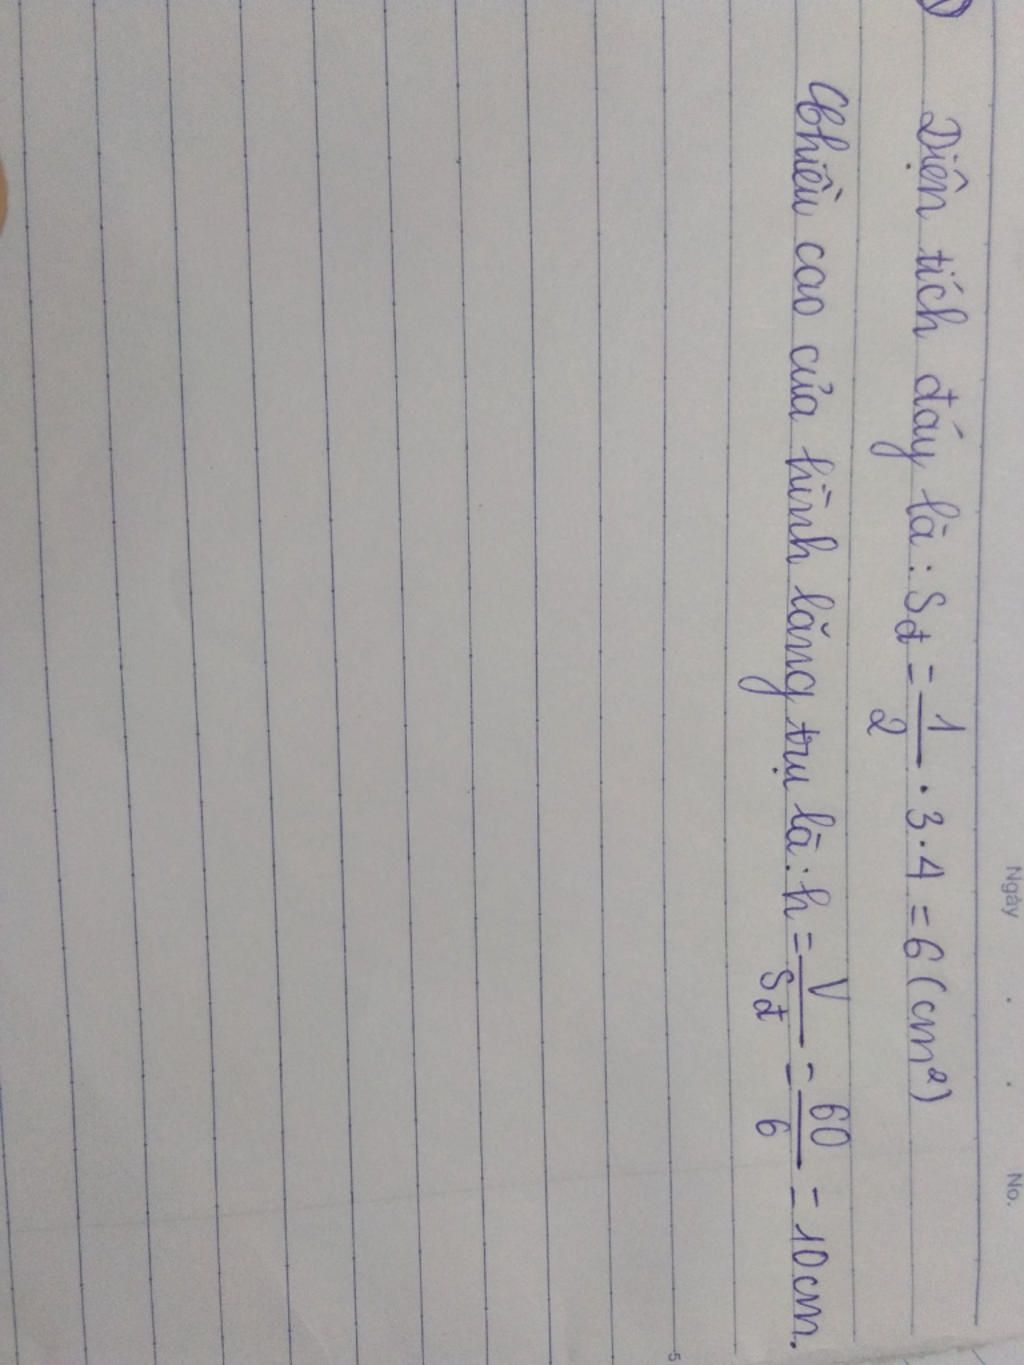 Ngày . . No.
Diện tích đáy là : Sđ = 1/2 . 3 . 4 = 6 (cm²)
Chiều cao của hình lăng trụ là : h = V/Sđ = 60/6 = 10cm.
5